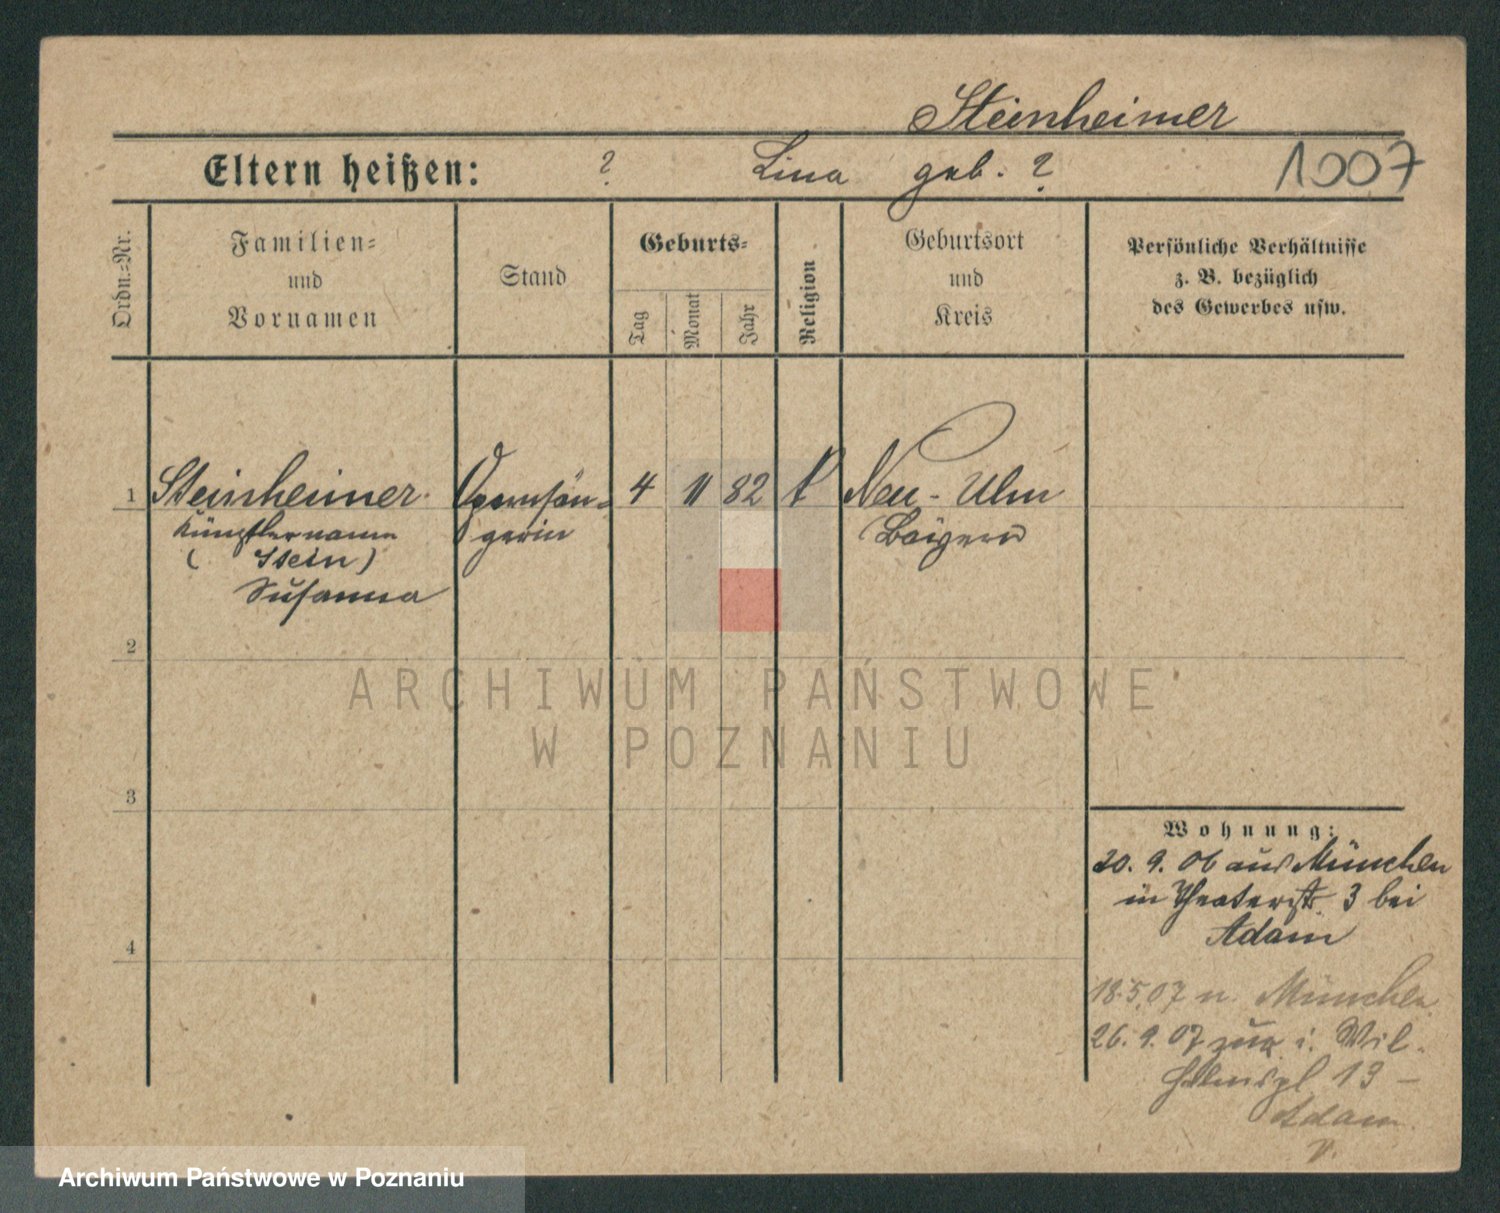 Steinheimer
Eltern heißen: ? Lina geb. ? 1007
Ordn.-Nr.
Familien-
und
Vornamen
Stand
Geburts-
Tag
Monat
Jahr
Religion
Geburtsort
und
Kreis
Persönliche Verhältnisse
z. B. bezüglich
des Gewerbes usw.
1 Steinheimer Opernsän- 4 11 82 k Neu-Ulm
Künstlername gerin Bayern
( Stein)
Susanna
2
ARCHIWUM PAŃSTWOWE
W POZNANIU
3
4
Wohnung:
20. 9. 06 aus München
in Theaterstr. 3 bei
Adam
18.5.07 n. München
26. 9. 07 zur i. Wil-
helmspl 13 -
Adam.
v.
Archiwum Państwowe w Poznaniu